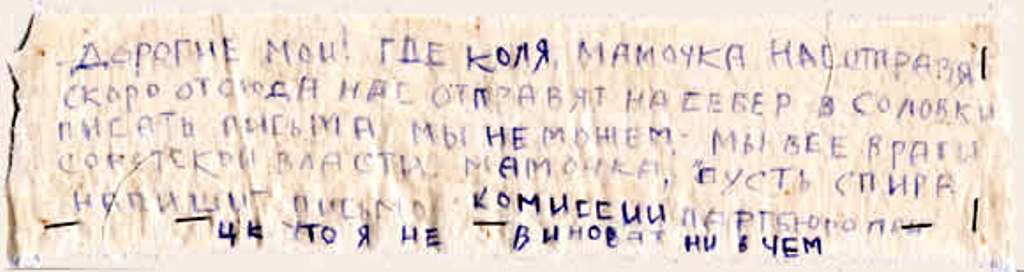 ДОРОГИЕ МОИ! ГДЕ КОЛЯ, МАМОЧКА НАС ОТПРАВЯ
СКОРО ОТСЮДА НАС ОТПРАВЯТ НА СЕВЕР В СОЛОВКИ
ПИСАТЬ ПИСЬМА МЫ НЕ МОЖЕМ. МЫ ВСЕ ВРАГИ
СОВЕТСКОЙ ВЛАСТИ. МАМОЧКА, ПУСТЬ СПИРА
НАПИШИТ ПИСЬМО КОМИССИИ
ЦК ТО Я НЕ ВИНОВАТ НИ В ЧЕМ